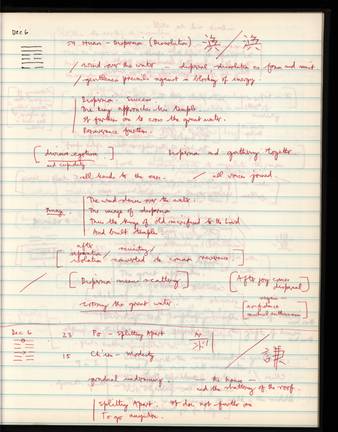 Dec 6
59 Huan - Dispersion (Dissolution) 渙 / 渙
/ wind over the water - dispersal dissolution as form and
/ gentleness prevails against a blocking of energy
Dispersion. Success.
The King approaches his temple.
It furthers one to cross the great water.
Perseverance furthers.
[ divisive egotism ] Dispersion and gathering together
and cupidity
all hands to the oars. / all voices joined.
Image
The wind drives over the water.
The image of dispersion
Thus the Kings of old sacrificed to the Lord
And built temples
after
separation /
isolation
[ Dispersion means scattering ] [ After joy comes
dispersal ]
crossing the great water
Dec 6 23 Po - Splitting Apart
15 Ch'ien - Modesty 謙
gradual undermining. the house
and the shattering of the roof.
Splitting Apart. It does not further one
To go anywhere.